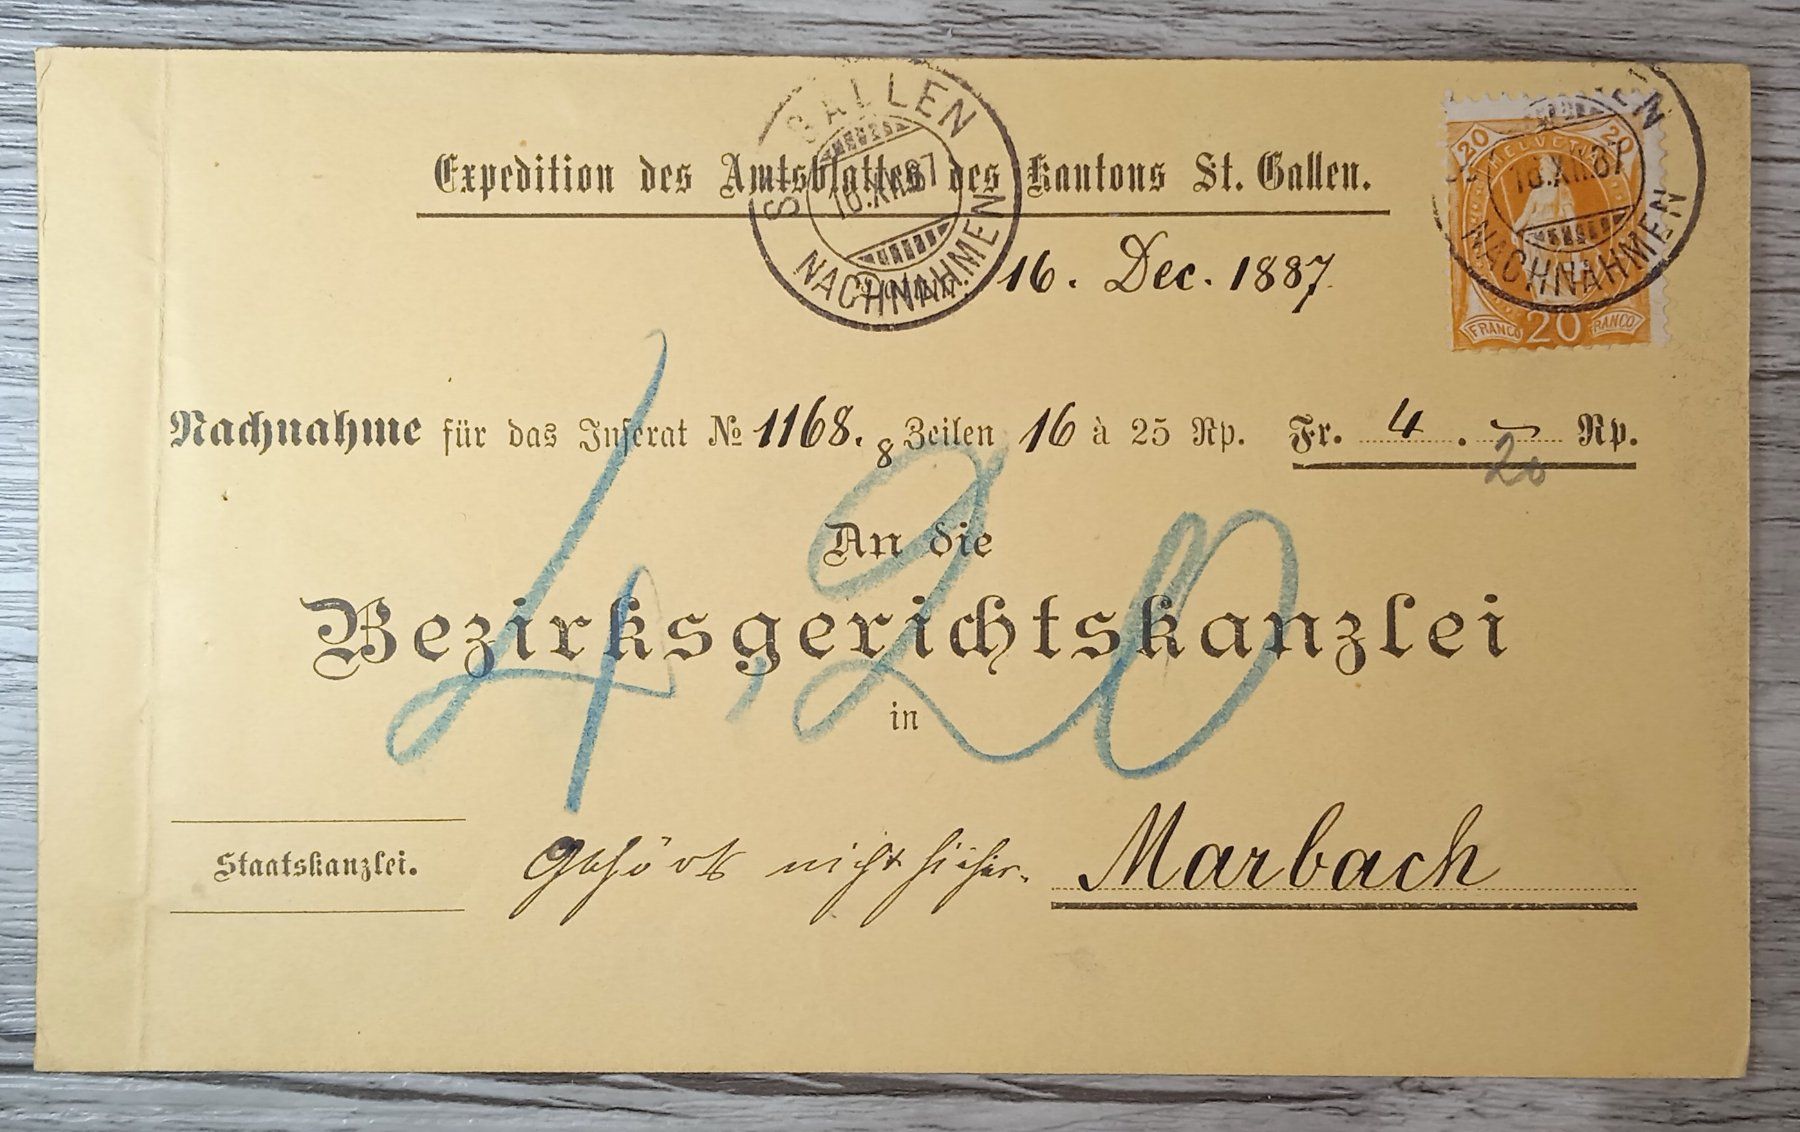 Expedition des Amtsblattes des Kantons St. Gallen.
ST. GALLEN
16.XII.87
NACHNAHMEN
16. Dec. 1887.
20 HELVETIA 20
16.XII.87
NACHNAHMEN
FRANCO 20 FRANCO
Nachnahme für das Inserat No 1168. 8 Zeilen 16 à 25 Rp. Fr. 4. – Rp.
20
4,20
An die
Bezirksgerichtskanzlei
in
Staatskanzlei.
Gehört nicht hieher.
Marbach